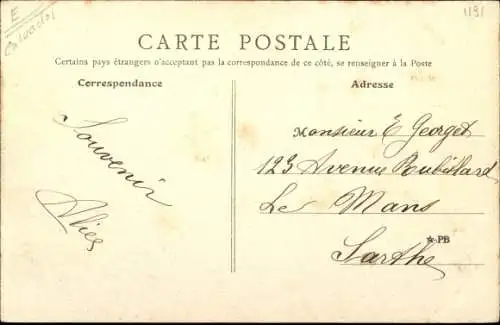 E
Calvados
1191
CARTE POSTALE
Certains pays étrangers n'acceptant pas la correspondance de ce côté, se renseigner à la Poste
Correspondance
Adresse
Souvenir
Alice
Monsieur E Georget
123 Avenue
Le Mans
Sarthe
PB